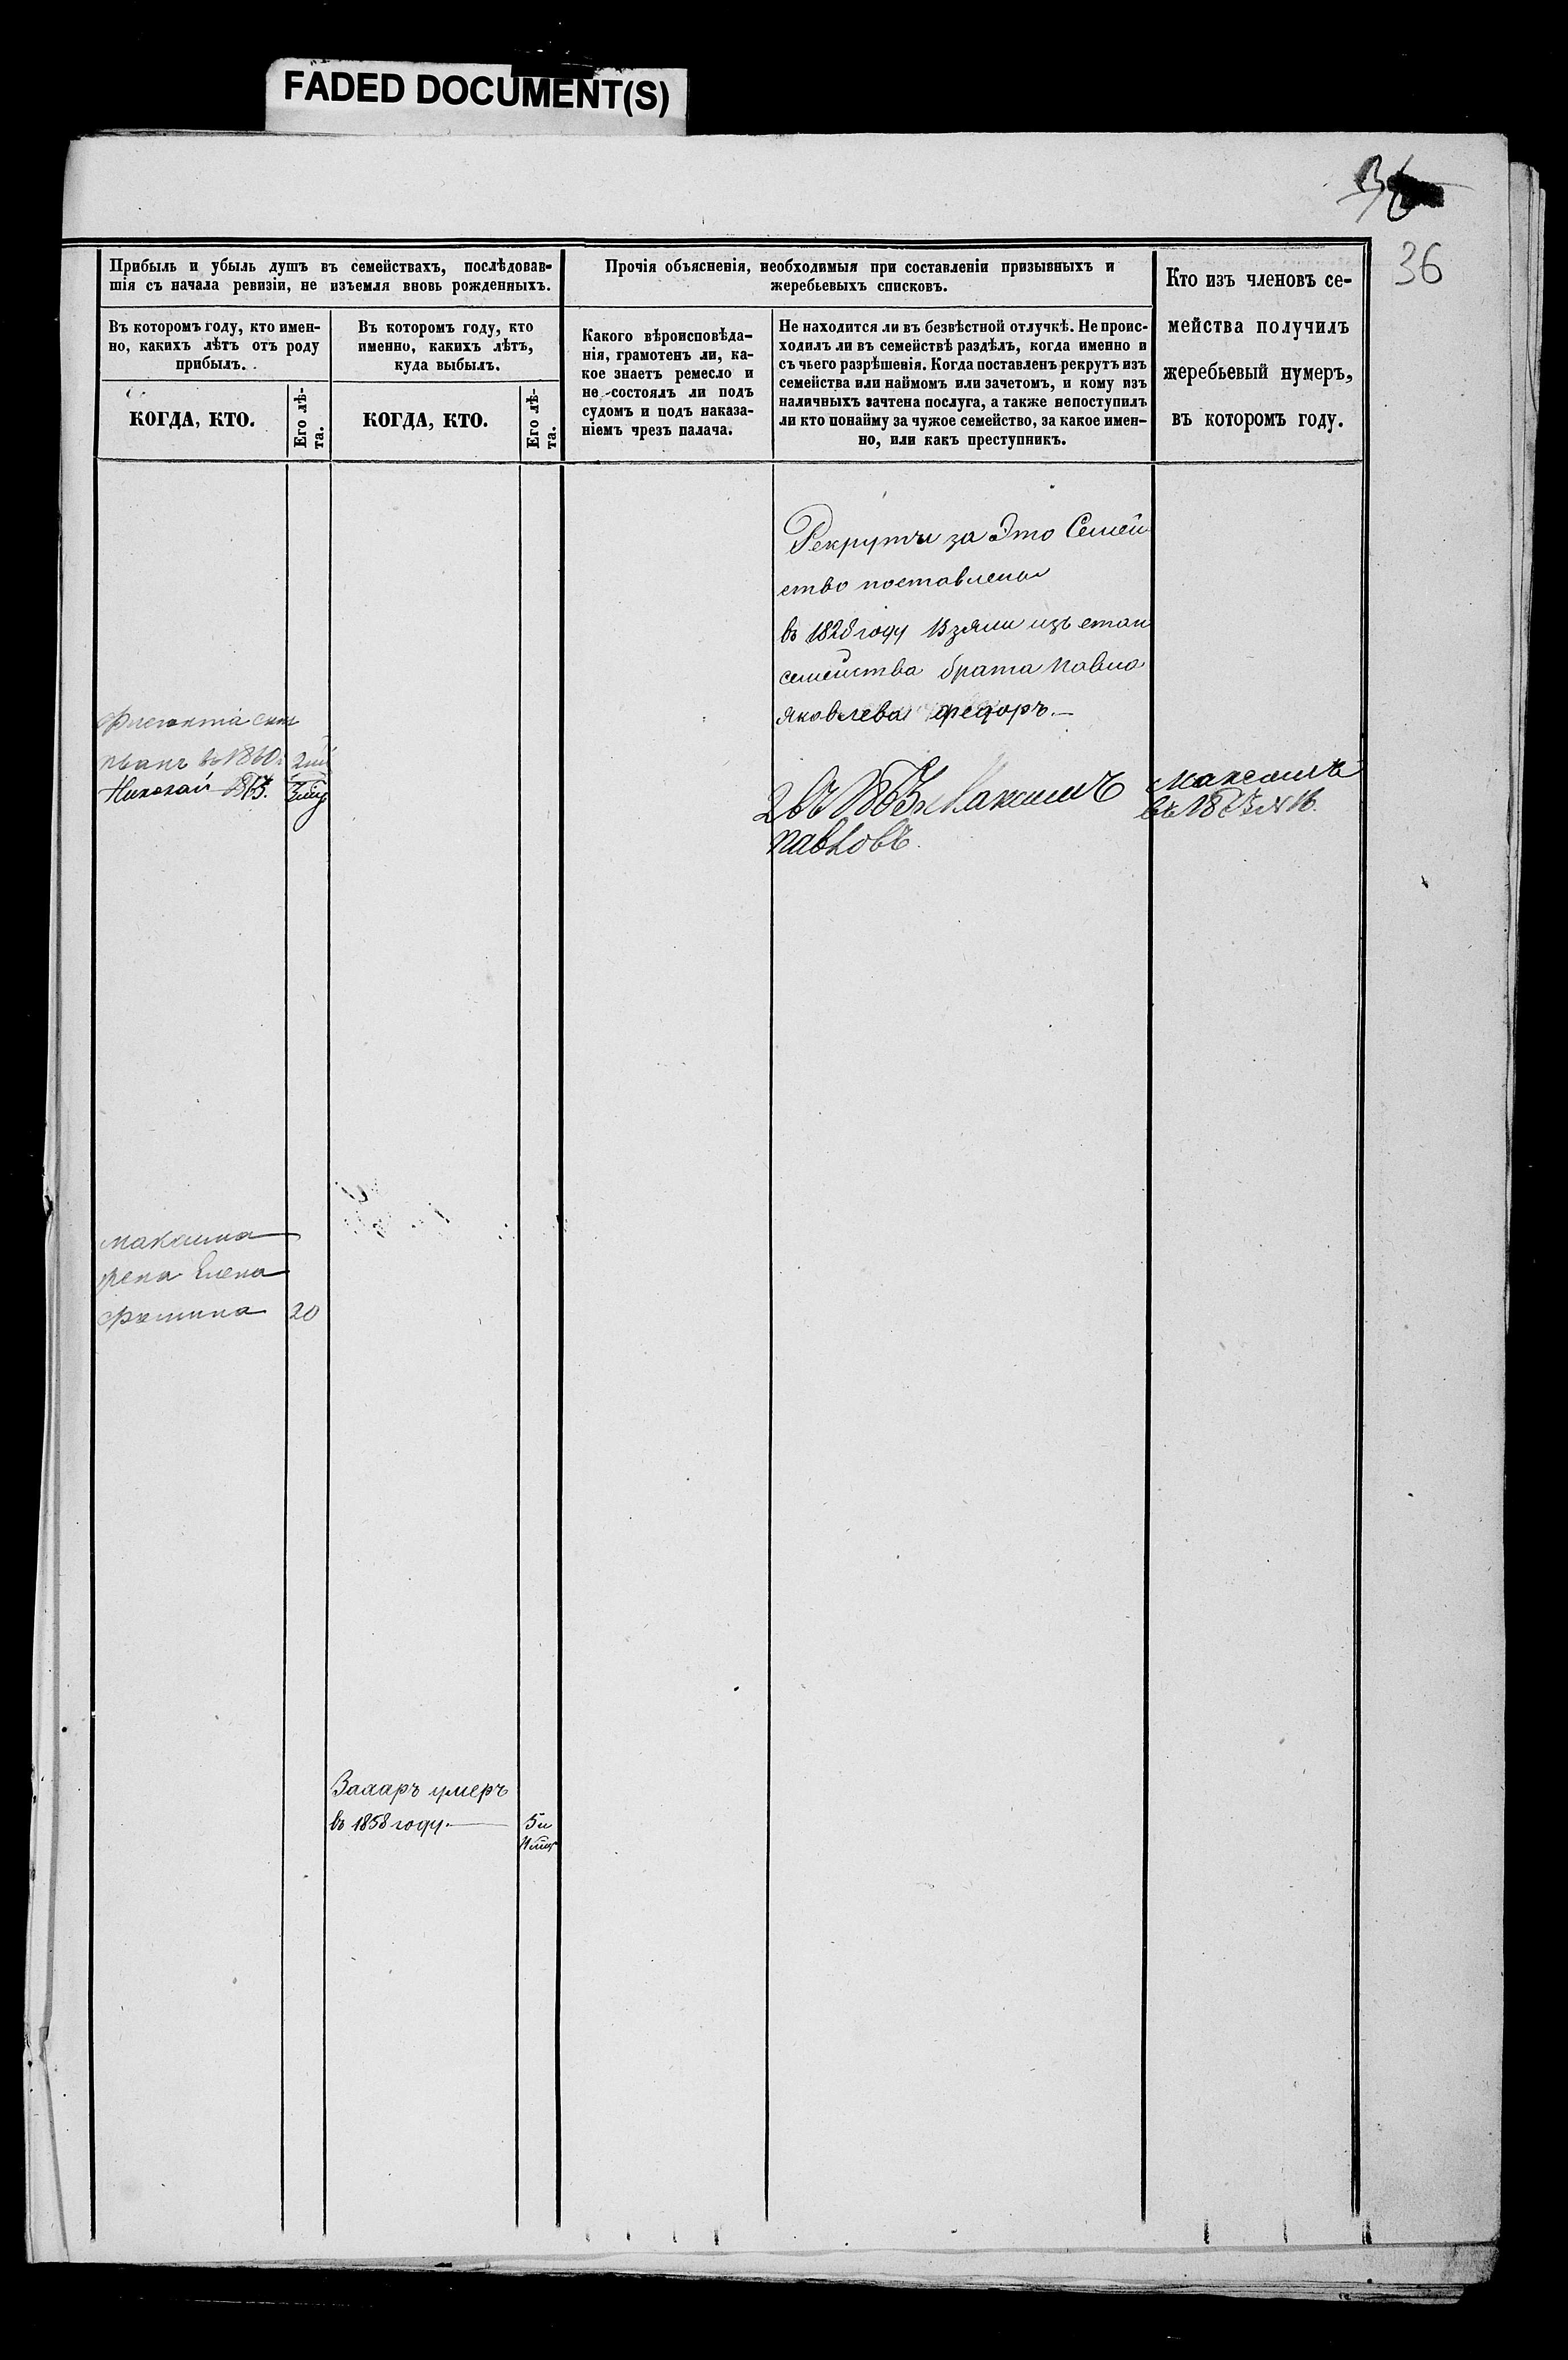 FADED DOCUMENT(S)
36
36
Прибыль и убыль душъ въ семействахъ, послѣдовав-
шія съ начала ревизіи, не изъемля вновь рожденныхъ.
Въ которомъ году, кто имен-
но, какихъ лѣтъ отъ роду
прибылъ.
КОГДА, КТО.
Его лѣ-
та.
Въ которомъ году, кто
именно, какихъ лѣтъ,
куда выбылъ.
КОГДА, КТО.
Его лѣ-
та.
Прочія объясненія, необходимыя при составленіи призывныхъ и
жеребьевыхъ списковъ.
Какого вѣроисповѣда-
нія, грамотенъ ли, ка-
кое знаетъ ремесло и
не состоялъ ли подъ
судомъ и подъ наказа-
ніемъ чрезъ палача.
Не находится ли въ безвѣстной отлучкѣ. Не проис-
ходилъ ли въ семействѣ раздѣлъ, когда именно и
съ чьего разрѣшенія. Когда поставленъ рекрутъ изъ
семейства или наймомъ или зачетомъ, и кому изъ
наличныхъ зачтена послуга, а также непоступилъ
ли кто понайму за чужое семейство, за какое имен-
но, или какъ преступникъ.
Кто изъ членовъ се-
мейства получилъ
жеребьевый нумеръ,
въ которомъ году.
Рекруты за Это Семей
ство поставлены
въ 1828 году Взяли изъ
семейства брата павла
Яковлева федоръ.—
2 въ 1863 Максимъ
павловъ.
Максимъ
въ 18 № 16.
сын
иванъ въ 1860
Николай
максима
жена Елена
фомина 20
Захаръ умеръ
въ 1858 году. 5 и